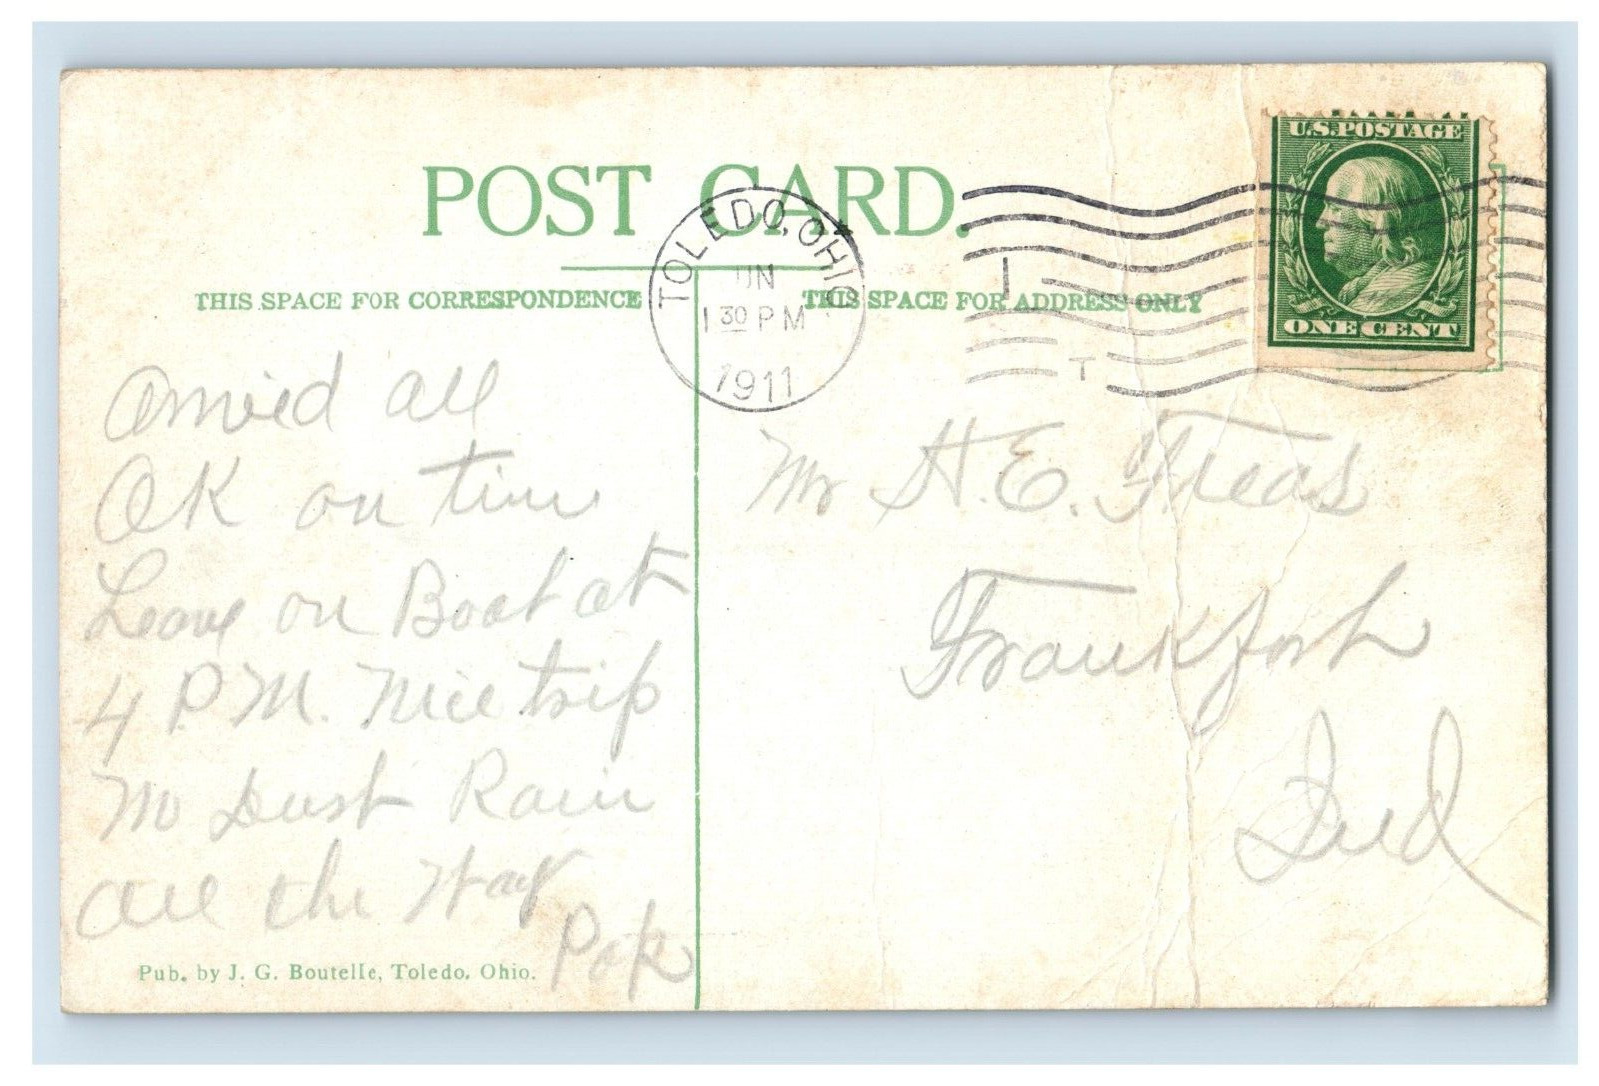 POST CARD.
TOLEDO, OHIO
JUN
1 30 PM
1911
U.S. POSTAGE
ONE CENT
THIS SPACE FOR CORRESPONDENCE
THIS SPACE FOR ADDRESS ONLY
Arrived all
OK on time
Leave on Boat at
4 P.M. Nice trip
No Dust Rain
all the Way
Pop
Mr H. E. Freas
Frankfort
Ind
Pub. by J. G. Boutelle, Toledo, Ohio.